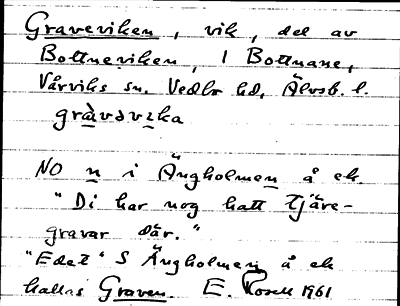 Graveviken, vik, del av
Bottneviken, i Bottnane,
Vårviks sn. Vedbo hd, Älvsb. l.
gràvəvika
NO n i Ängholmen å ek.
"Di har nog hatt tjäre-
gravar där."
"Edet" S Ängholmen å ek
kallas Graven. E. Rosell 1961